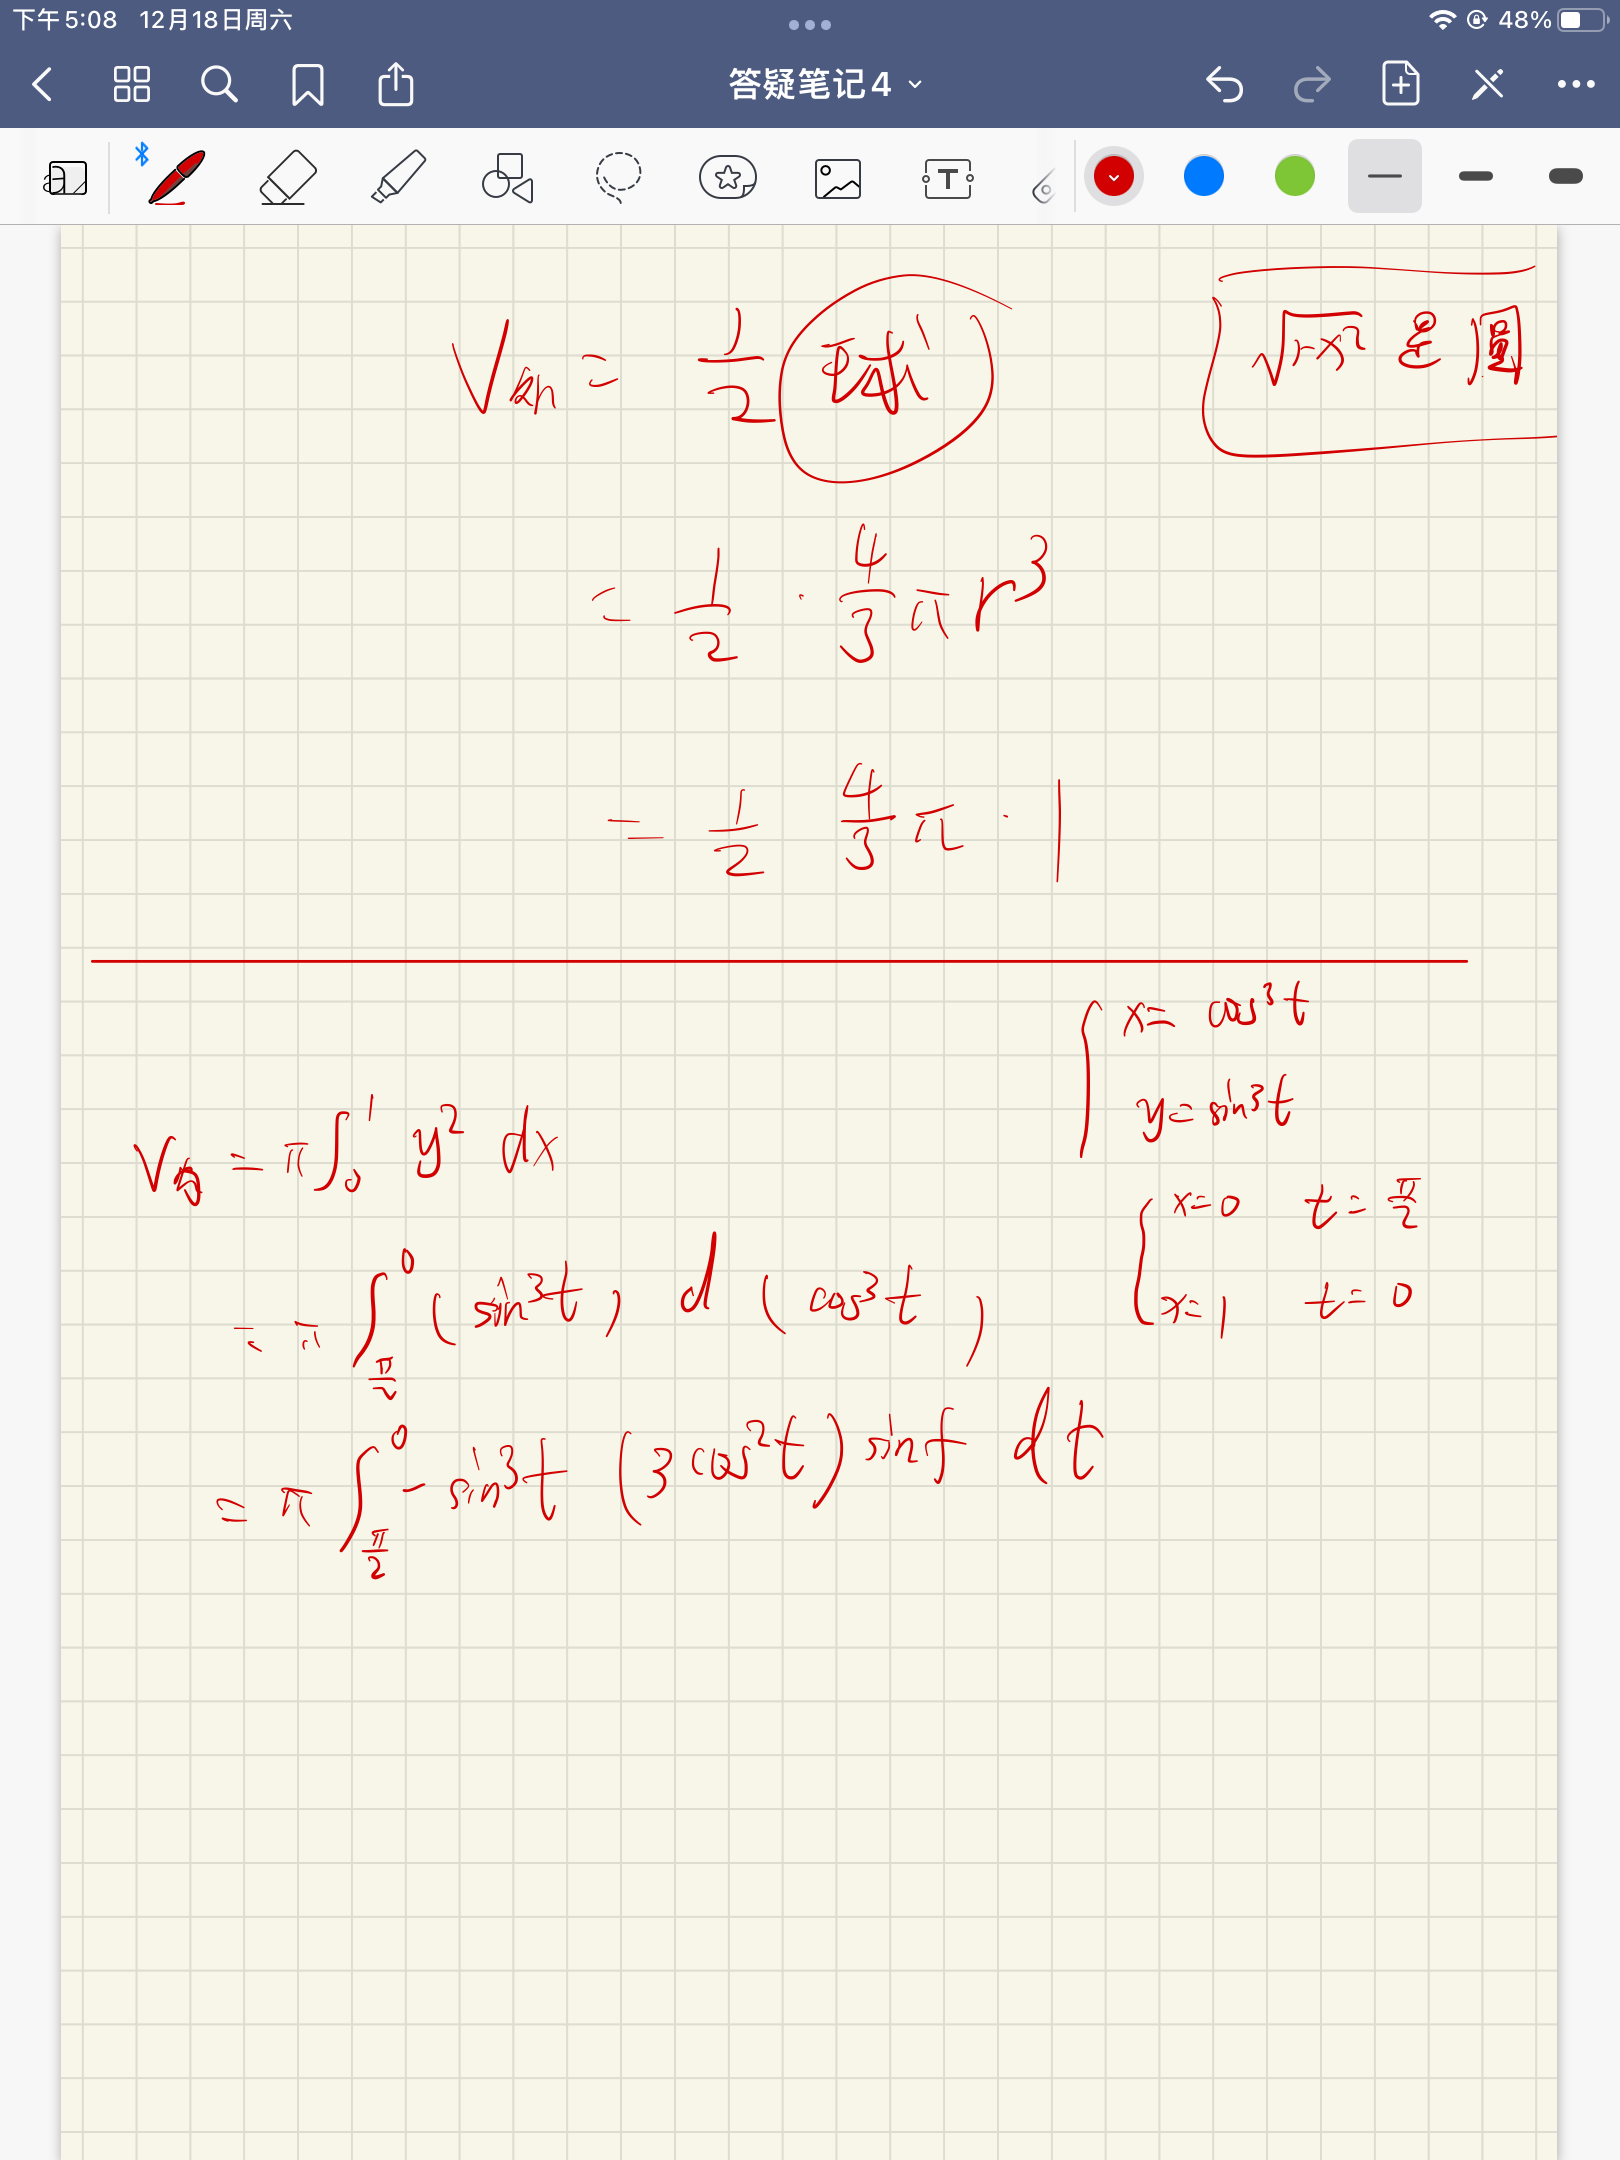 下午5:08 12月18日周六 48%
答疑笔记4
V = 1/2 球 √1-x² 是圆
= 1/2 · 4/3 π r³
= 1/2 4/3 π · 1
{ x = cos³t
y = sin³t
V = π∫₀¹ y² dx
{ x=0 t = π/2
x=1 t = 0
= π ∫_{π/2}^0 (sin³t) d (cos³t)
= π ∫_{π/2}^0 - sin³t (3cos²t) sint dt